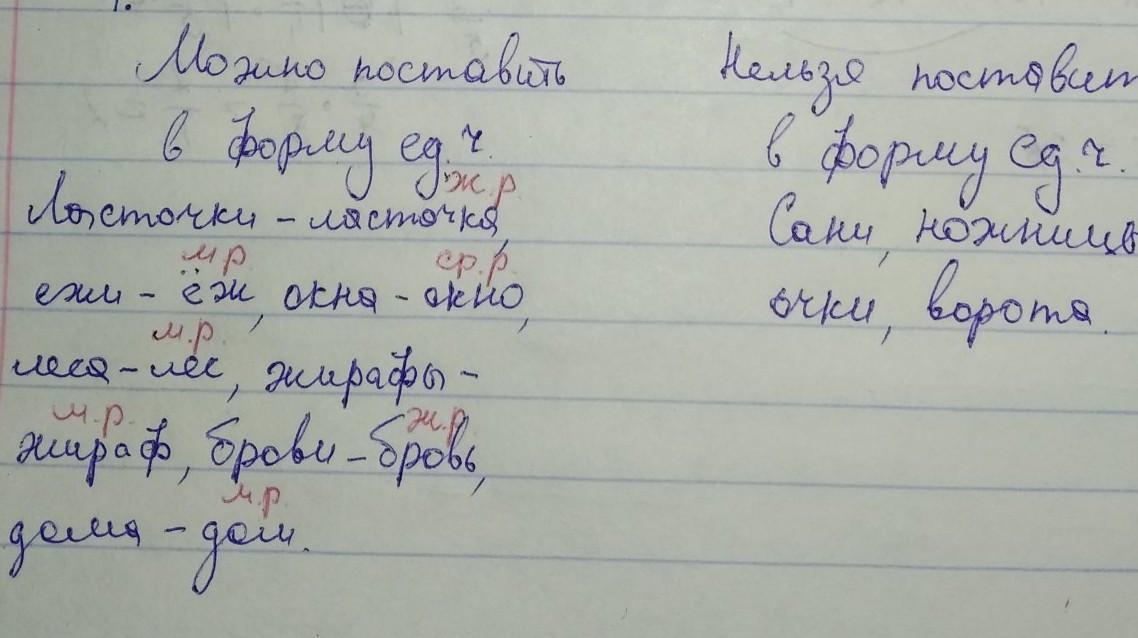 1.
Можно поставить
в форму ед.ч.
ж.р.
Ласточки – ласточка,
м.р. ср.р.
ежи – ёж, окна – окно,
м.р.
леса – лес, жирафы –
м.р. ж.р.
жираф, брови – бровь,
м.р.
дома – дом.
Нельзя поставит
в форму ед.ч.
Сани, ножницы
очки, ворота.